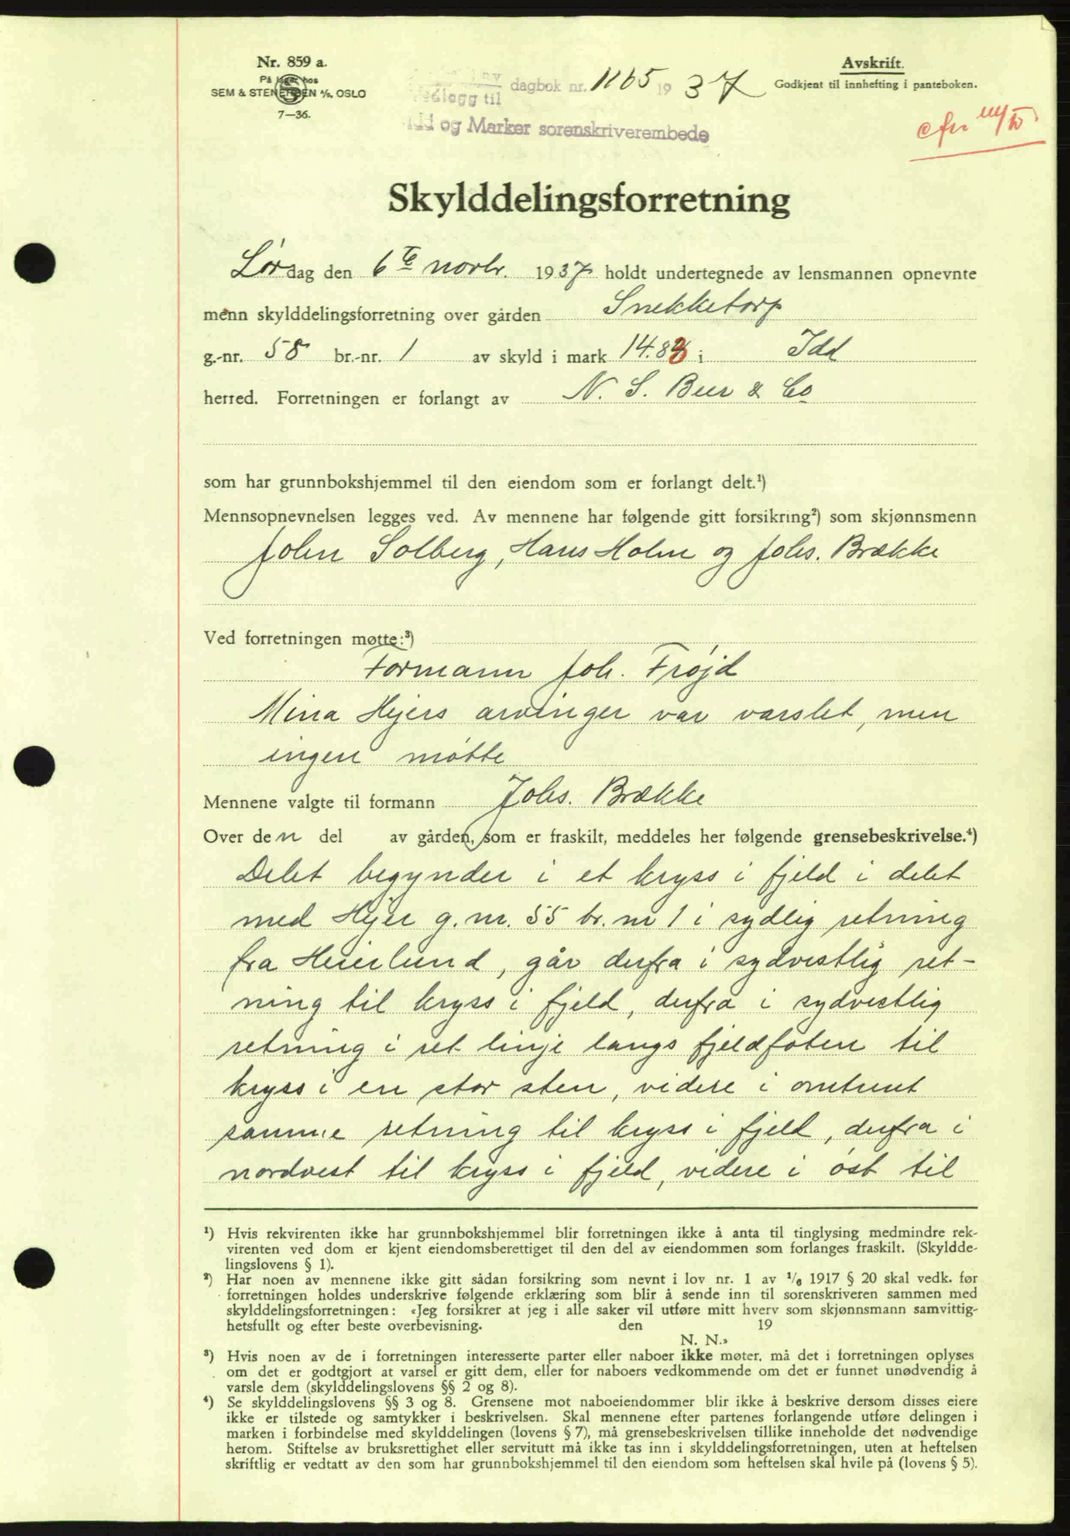 Nr. 859 a.
På lager hos
SEM & STENERSEN A/S, OSLO
7—36.
dagbok nr. 1165 1937
legg til
Idd og Marker sorenskriverembede
Avskrift.
Godkjent til innhefting i panteboken.
Skylddelingsforretning
Lørdag den 6te novbr. 1937 holdt undertegnede av lensmannen opnevnte
menn skylddelingsforretning over gården Snekketorp
g.-nr. 58 br.-nr. 1 av skyld i mark 14.83 i Idd
herred. Forretningen er forlangt av N. S. Beer & Co
som har grunnbokshjemmel til den eiendom som er forlangt delt.¹)
Mennsopnevnelsen legges ved. Av mennene har følgende gitt forsikring²) som skjønnsmenn
John Solberg, Hans Holm og Johs. Brække
Ved forretningen møtte:³)
Formann Joh. Frøjd
Mina Hejers arvinger var varslet, men
ingen møtte
Mennene valgte til formann Johs. Brække
Over den del av gården, som er fraskilt, meddeles her følgende grensebeskrivelse.⁴)
Delet begynder i et kryss i fjeld i delet
med Hejer g.nr. 55 br. nr 1 i sydlig retning
fra Heierlund, går derfra i sydvestlig ret-
ning til kryss i fjeld, derfra i sydvestlig
retning i ret linje langs fjeldfoten til
kryss i en stor sten, videre i omtrent
samme retning til kryss i fjeld, derfra i
nordvest til kryss i fjeld, videre i øst til
¹) Hvis rekvirenten ikke har grunnbokshjemmel blir forretningen ikke å anta til tinglysing medmindre rek-
virenten ved dom er kjent eiendomsberettiget til den del av eiendommen som forlanges fraskilt. (Skyldde-
lingslovens § 1).
²) Har noen av mennene ikke gitt sådan forsikring som nevnt i lov nr. 1 av ¹/₆ 1917 § 20 skal vedk. før
forretningen holdes underskrive følgende erklæring som blir å sende inn til sorenskriveren sammen med
skylddelingsforretningen: «Jeg forsikrer at jeg i alle saker vil utføre mitt hverv som skjønnsmann samvittig-
hetsfullt og efter beste overbevisning. den 19
N. N.»
³) Hvis noen av de i forretningen interesserte parter eller naboer ikke møter, må det i forretningen oplyses
om det er godtgjort at varsel er gitt dem, eller for naboers vedkommende om det er funnet unødvendig å
varsle dem (skylddelingslovens §§ 2 og 8).
⁴) Se skylddelingslovens §§ 3 og 8. Grensene mot naboeiendommer blir ikke å beskrive dersom disses eiere
ikke er tilstede og samtykker i beskrivelsen. Skal mennene efter partenes forlangende utføre delingen i
marken i forbindelse med skylddelingen (lovens § 7), må grensebeskrivelsen tillike inneholde det nødvendige
herom. Stiftelse av bruksrettighet eller servitutt må ikke tas inn i skylddelingsforretningen, uten at heftelsen
skriftlig er vedtatt av den som har grunnbokshjemmel til den eiendom som heftelsen skal hvile på (lovens § 5).